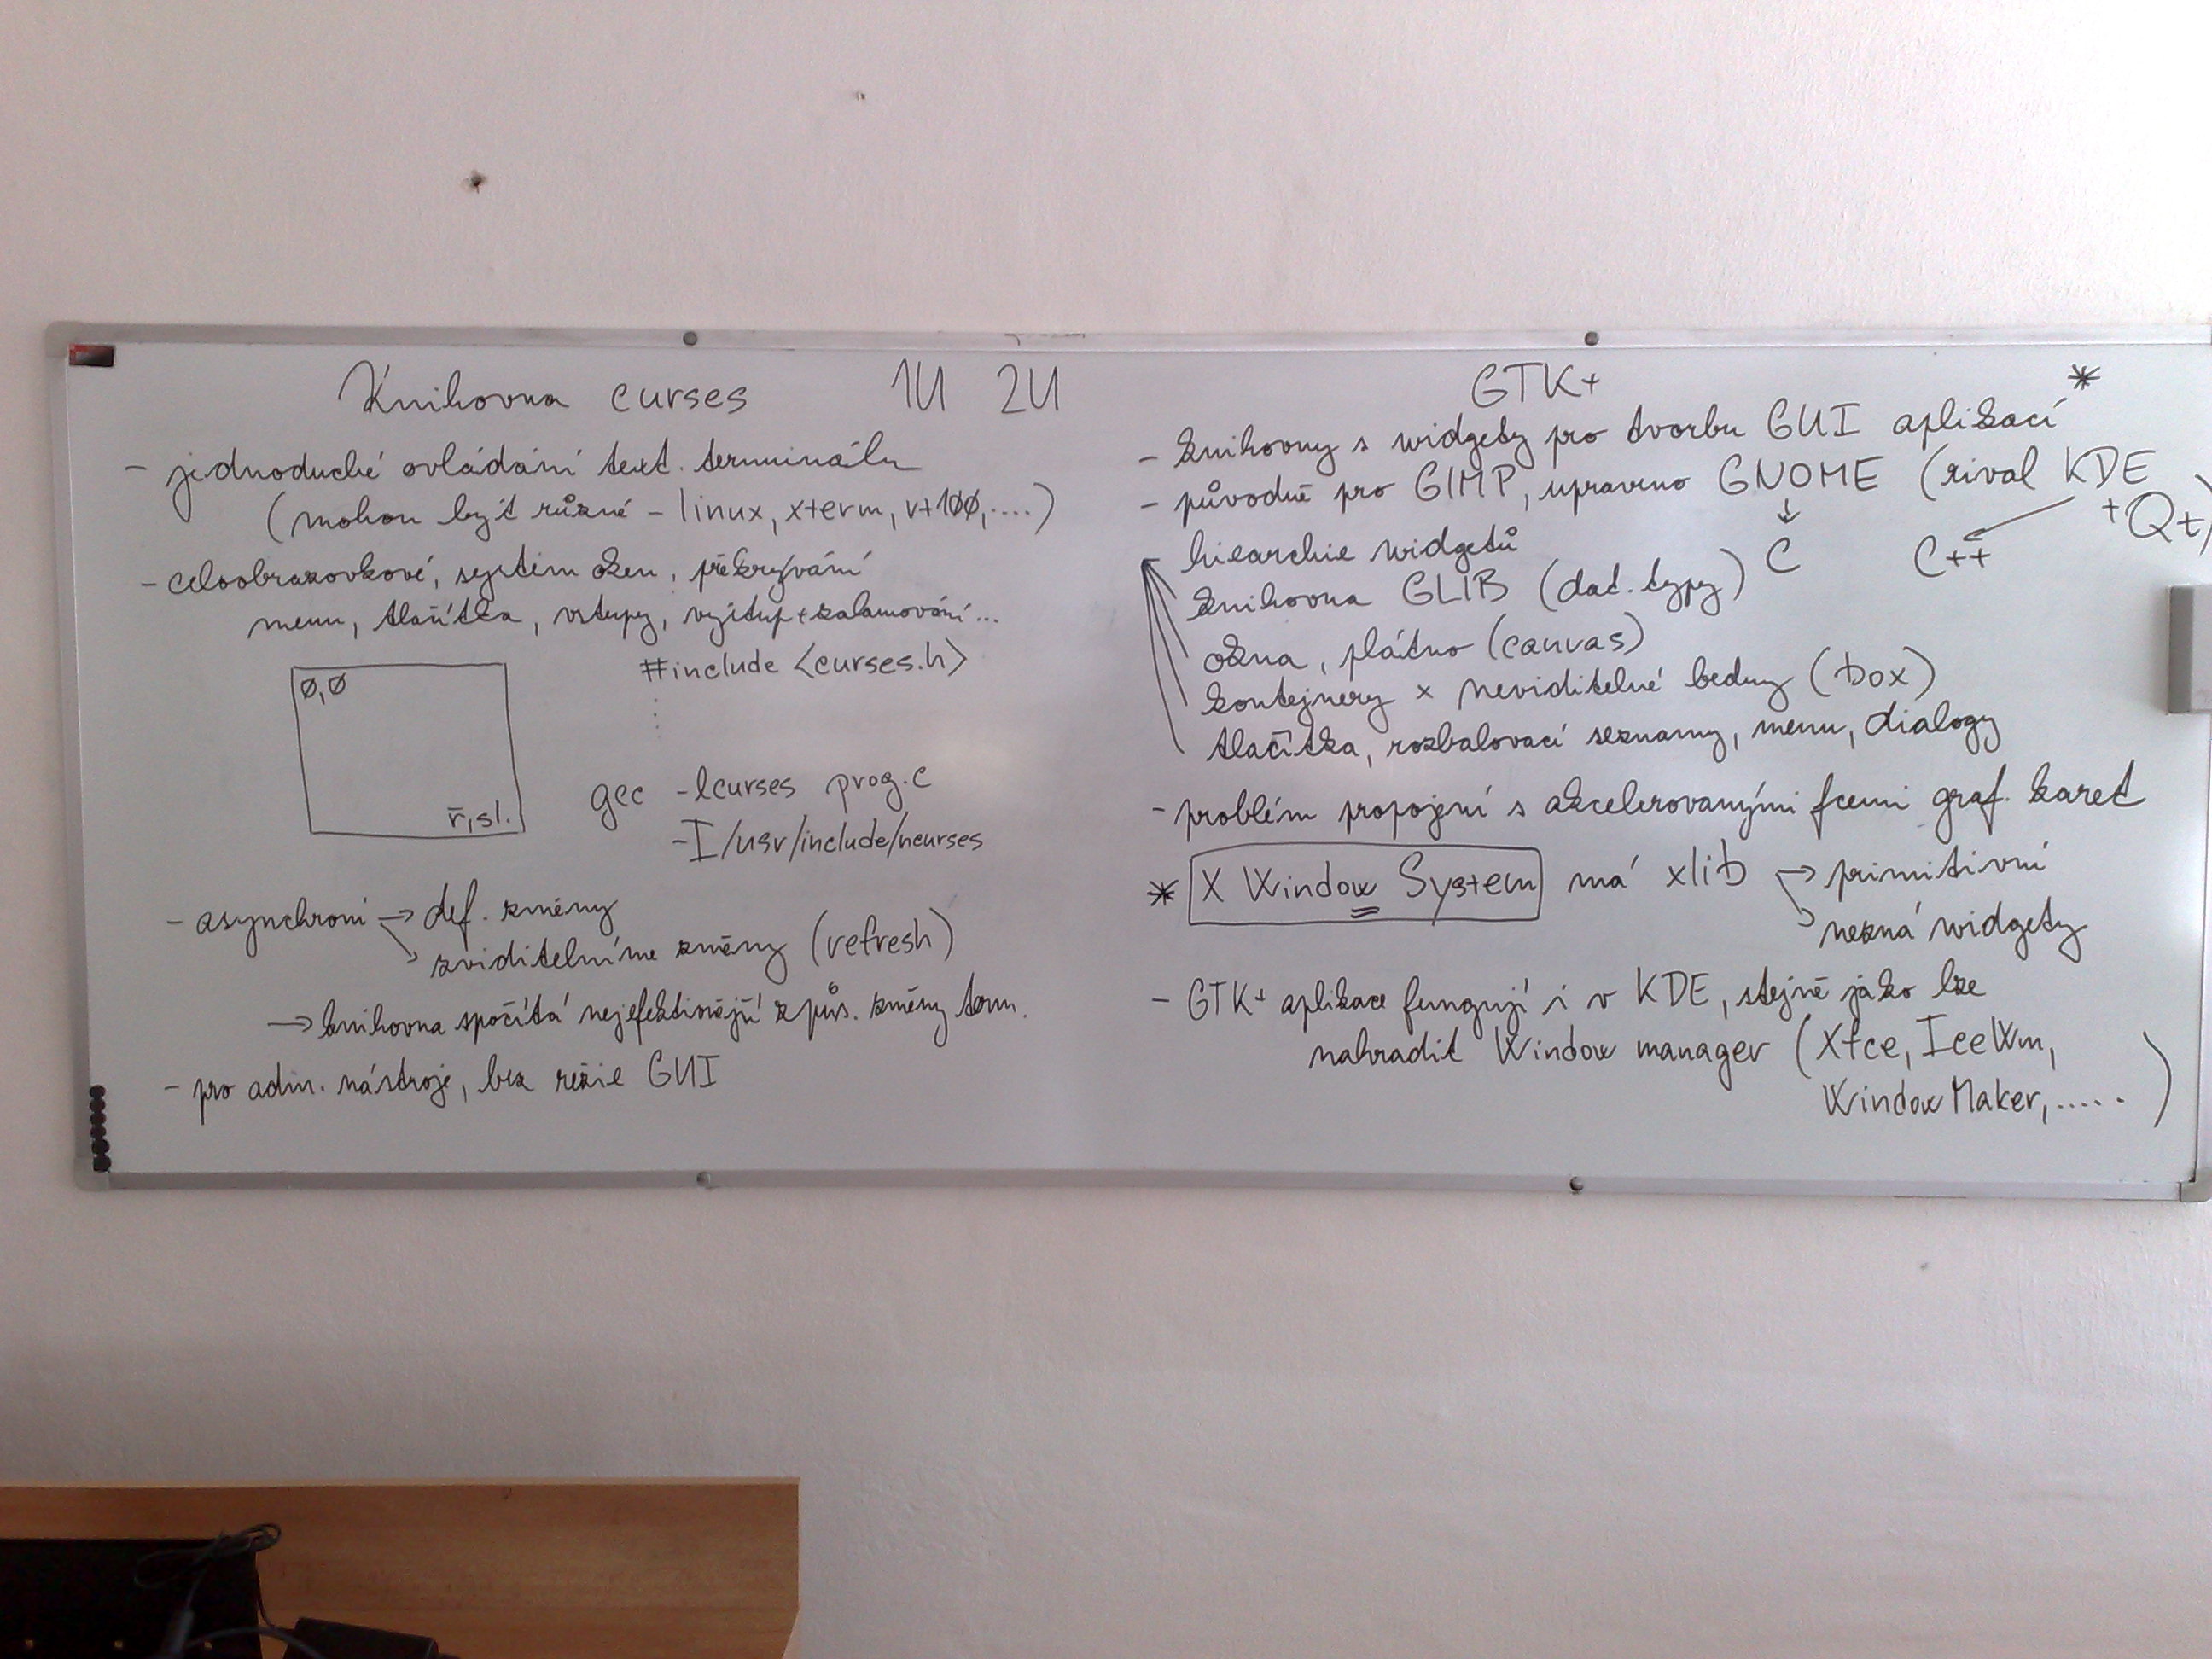 Knihovna curses 1U 2U
- jednoduché ovládání text. terminálu
(mohou být různé - linux, xterm, vt100, ....)
- celoobrazovkové, systém oken, překrývání
menu, tlačítka, vstupy, výstup + zalamování...
#include <curses.h>
0,0
ř,sl.
gcc -lcurses prog.c
-I/usr/include/ncurses
- asynchroní → def. změny
zviditelníme změny (refresh)
→ knihovna spočítá nejefektivnější způs. změny term.
- pro adm. nástroje, bez režie GUI
GTK+
- knihovny s widgety pro tvorbu GUI aplikací *
- původně pro GIMP, upraveno GNOME (rival KDE
+Qt)
↓
C C++
hiearchie widgetů
knihovna GLIB (dat. typy)
okna, plátno (canvas)
kontejnery x neviditelné bedny (box)
tlačítka, rozbalovací seznamy, menu, dialogy
- problém propojení s akcelerovanými fcemi graf. karet
* X Window System má xlib → primitivní
nezná widgety
- GTK+ aplikace fungují i v KDE, stejně jako lze
nahradit Window manager (Xfce, IceWm,
WindowMaker, .....)